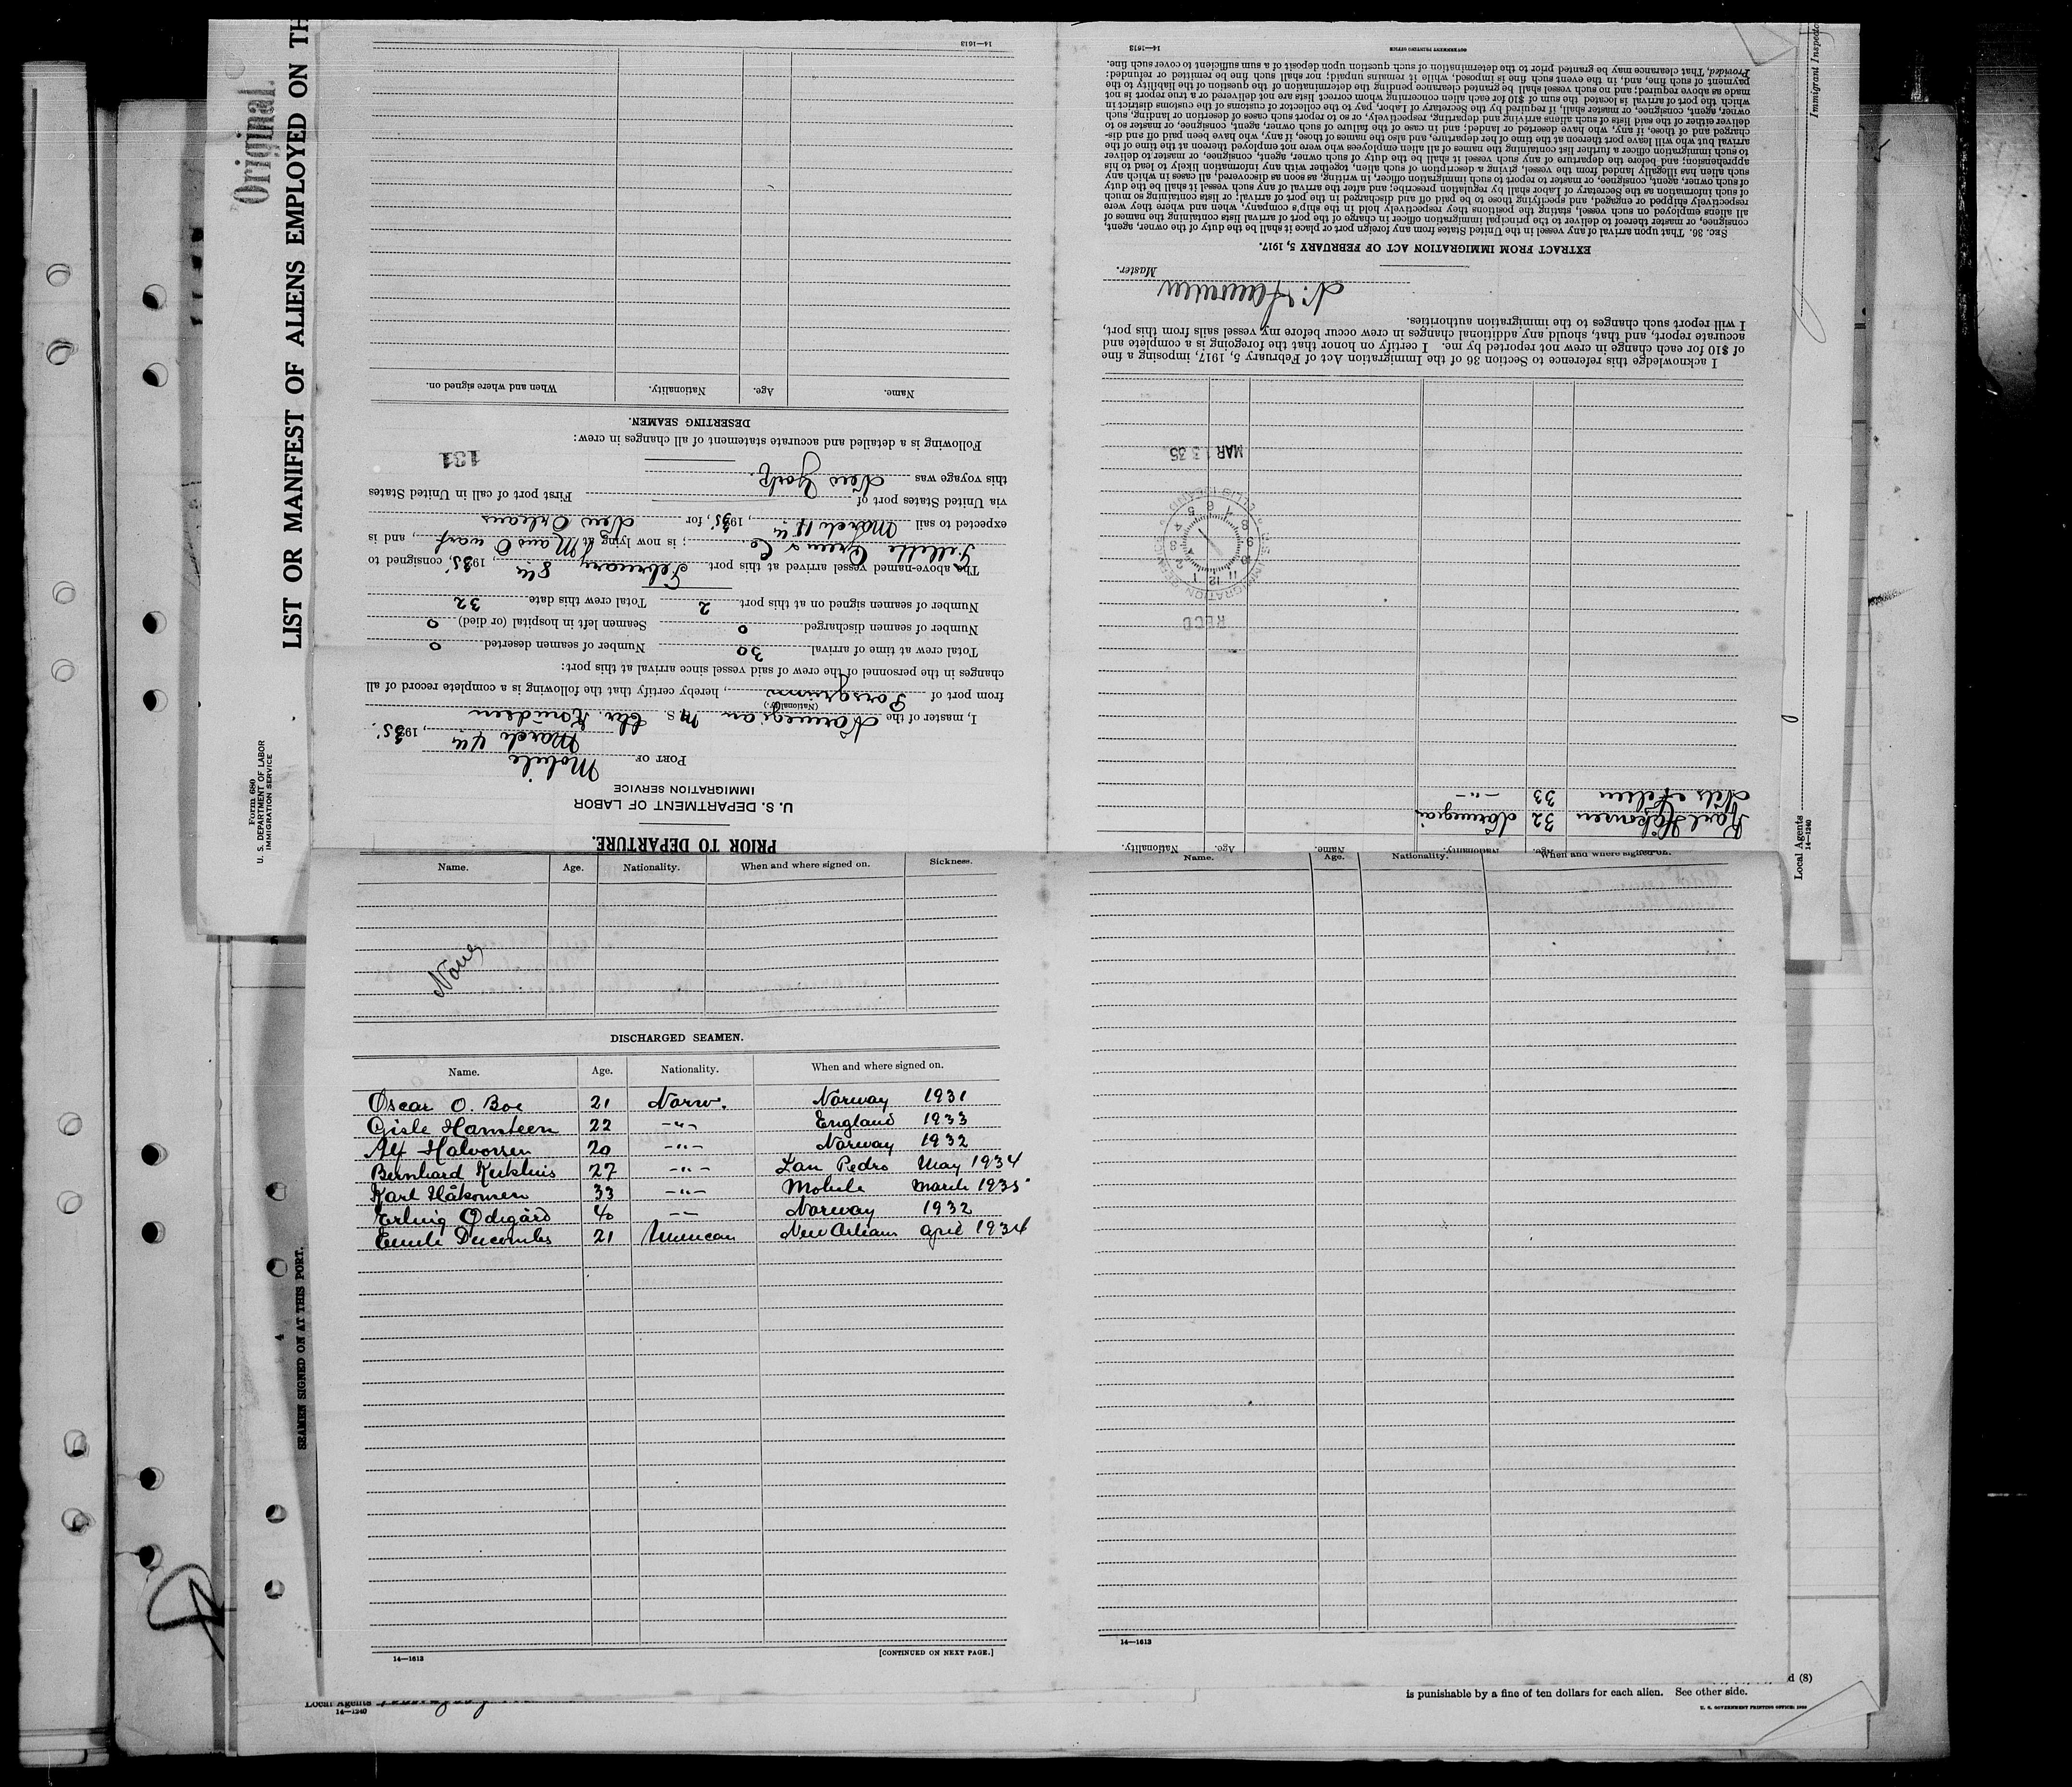 Original.
LIST OR MANIFEST OF ALIENS EMPLOYED ON TH
Form 680
U. S. DEPARTMENT OF LABOR
IMMIGRATION SERVICE
PRIOR TO DEPARTURE.
U. S. DEPARTMENT OF LABOR
IMMIGRATION SERVICE
PORT OF Mobile
March 4th, 1935.
I, master of the Norwegian M. S. Chr. Knudsen
(Nationality.)
from port of Porsgrunn, hereby certify that the following is a complete record of all
changes in the personnel of the crew of said vessel since arrival at this port:
Total crew at time of arrival 30 Number of seamen deserted 0
Number of seamen discharged 0 Seamen left in hospital (or died) 0
Number of seamen signed on at this port 2 Total crew this date 32
The above-named vessel arrived at this port February 8th, 1935, consigned to
Fillette Green & Co.; is now lying at M and O warf, and is
expected to sail March, 1935, for New Orleans
via United States port of First port of call in United States
this voyage was New York.
131
Following is a detailed and accurate statement of all changes in crew:
DESERTING SEAMEN.
Name. Age. Nationality. When and where signed on.
14—1613
Name. Age. Nationality. Name. Age. Nationality.
Karl Håkonsen 32 Norwegian
Nils Nelsen 33 -"-
RECD
U.S. IMMIGRATION SERVICE
12 11 10 9 8 7 6 5 4 3 2 1
MAR 13 35
I acknowledge this reference to Section 36 of the Immigration Act of February 5, 1917, imposing a fine
of $10 for each change in crew not reported by me. I certify on honor that the foregoing is a complete and
accurate report, and that, should any additional changes in crew occur before my vessel sails from this port,
I will report such changes to the immigration authorities.
Master.
EXTRACT FROM IMMIGRATION ACT OF FEBRUARY 5, 1917.
SEC. 36. That upon arrival of any vessel in the United States from any foreign port or place it shall be the duty of the owner, agent,
consignee, or master thereof to deliver to the principal immigration officer in charge of the port of arrival lists containing the names of
all aliens employed on such vessel, stating the positions they respectively hold in the ship's company, when and where they were
respectively shipped or engaged, and specifying those to be paid off and discharged in the port of arrival; or lists containing so much
of such information as the Secretary of Labor shall by regulation prescribe; and after the arrival of any such vessel it shall be the duty
of such owner, agent, consignee, or master to report to such immigration officer, in writing, as soon as discovered, all cases in which any
such alien has illegally landed from the vessel, giving a description of such alien, together with any information likely to lead to his
apprehension; and before the departure of any such vessel it shall be the duty of such owner, agent, consignee, or master to deliver
to such immigration officer a further list containing the names of all alien employees who were not employed thereon at the time of the
arrival but who will leave port thereon at the time of her departure, and also the names of those, if any, who have been paid off and dis-
charged and of those, if any, who have deserted or landed; and in case of the failure of such owner, agent, consignee, or master so to
deliver either of the said lists of such aliens arriving and departing, respectively, or so to report such cases of desertion or landing, such
owner, agent, consignee, or master, shall, if required by the Secretary of Labor, pay to the collector of customs of the customs district in
which the port of arrival is located the sum of $10 for each alien concerning whom correct lists are not delivered or a true report is not
made as above required; and no such vessel shall be granted clearance pending the determination of the question of the liability to the
payment of such fine, and, in the event such fine is imposed, while it remains unpaid; nor shall such fine be remitted or refunded:
Provided, That clearance may be granted prior to the determination of such question upon deposit of a sum sufficient to cover such fine.
14—1613
GOVERNMENT PRINTING OFFICE
Immigrant Inspecto
Local Agents
14—1240
Name. Age. Nationality. When and where signed on. Sickness.
None
DISCHARGED SEAMEN.
Name. Age. Nationality. When and where signed on.
Oscar O. Boe 21 Norw. Norway 1931
Gisle Hansteen 22 -"- England 1933
Alf Halvorsen 20 -"- Norway 1932
Bernhard 27 -"- San Pedro May 1934
Karl Håkonsen 33 -"- Mobile March 1935
Erling Ødegård 40 -"- Norway 1932
21 New Orleans April 1934
14—1613
[CONTINUED ON NEXT PAGE.]
Name. Age. Nationality. When and where signed on.
14—1613
SEAMEN SIGNED ON AT THIS PORT.
4
Local Agents
14—1240
d (8)
is punishable by a fine of ten dollars for each alien. See other side.
U. S. GOVERNMENT PRINTING OFFICE: